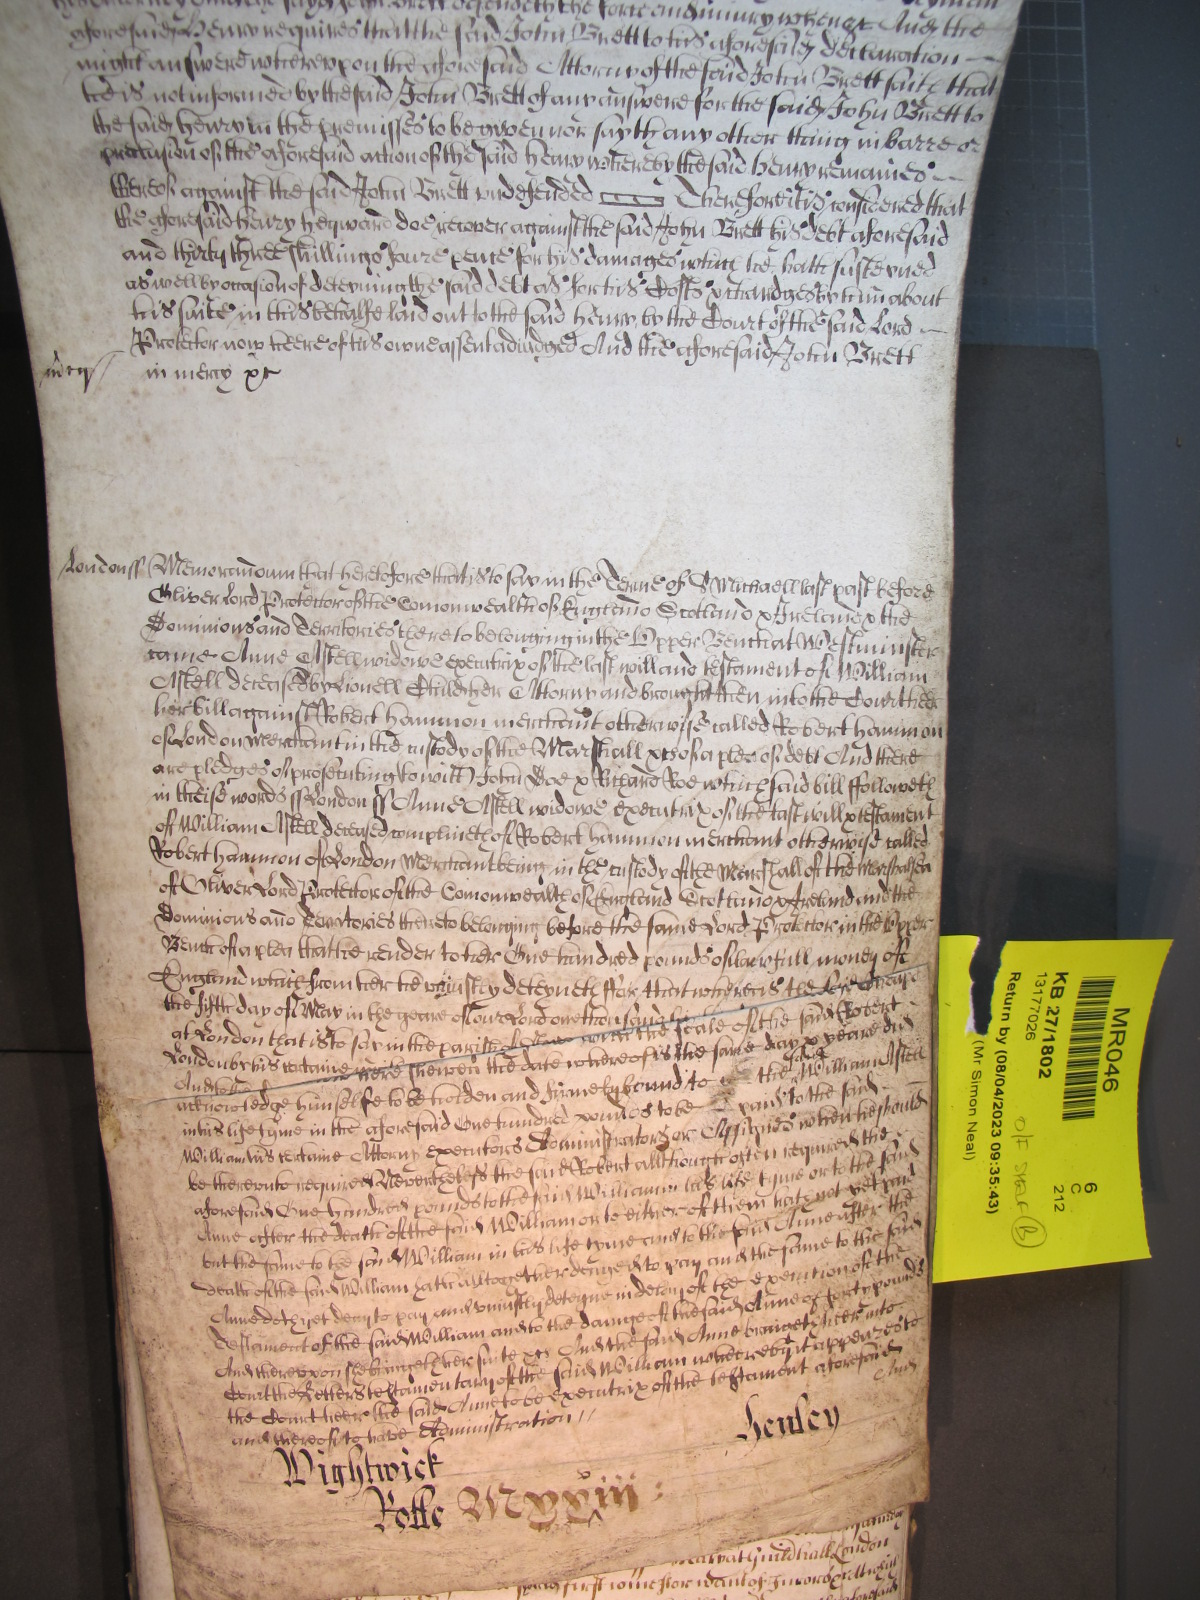 aforesaid Henry requires that the said John Brett to his aforesaid declaration
might answere whereupon the aforesaid Attorny of the said John Brett saith that
hee is not informed by the said John Brett of any answere for the said John Brett to
the said Henry in the premisses to be given nor sayth any other thing in barre or
preclusion of the aforesaid action of the said Henry whereby the said Henry remained
thereof against the said John Brett undefended Therefore it is considered that
the aforesaid Henry Heyward doe recover against the said John Brett his debt aforesaid
and thirty three shillings foure pence for his damages which he hath susteyned
aswell by occasion of deteyning the said debt as for his Costs & chardges by him about
his suite in this behalfe laid out to the said Henry by the Court of the said Lord
Protector now heere of his owne assent adiudged And the aforesaid John Brett
in mercy &c
London ss Memorandum that heretofore that is to say in the Terme of St Michaell last past before
Oliver Lord Protector of the Comonwealth of England Scotland & Ireland & the
Dominions and Territories thereto belonging in the Upper Bench at Westminster
came Anne Astell widowe executrix of the last will and testament of William
Astell deceased by Lionell Attorny and brought then into the Court heere
her bill against Robert Hammon merchant otherwise called Robert Hammon
of London Merchant in the custody of the Marshall &c of a plea of debt And there
are pledges of prosecuting to witt John Doe & Richard Roe which said bill followeth
in theise words ss London ss Anne Astell widowe executrix of the last will & testament
of William Astell deceased complaineth of Robert Hammon merchant otherwise called
Robert Hammon of London Merchant being in the custody of the Marshall of the Marshalsea
of Oliver Lord Protector of the Comonwealth of England Scotland & Ireland and the
Dominions and Territories thereto belonging before the same Lord Protector in the Upper
Bench of a plea that he render to her One hundred pounds of lawfull money of
England which from her he uniustly deteyneth For that whereas the said Robert
the fifth day of May in the yeare of our Lord one thousand
at London that is to say in the parish with the seale of the said Robert
London by his certaine heere shewen the date whereof is the same day & yeare did
acknowledge himselfe to be holden and firmely bound to the said William Astell
in his life tyme in the aforesaid One hundred pounds to be paid to the said
William his certaine Attorny executors Administrators or Assignes when he should
be thereunto required Neverthelesse the said Robert allthough often required the
aforesaid One hundred pounds to the said William in his life tyme or to the said
Anne after the death of the said William or to either of them hath not yet paid
but the same to the said William in his life tyme and to the said Anne after the
death of the said William hath alltogether denyed to pay and the same to the said
Anne doth yet deny to pay and uniustly deteyne in delay of the execution of the
Testament of the said William and to the damage of the said Anne of forty pounds
And thereupon she bringeth her suite &c And the said Anne bringeth heere into
Court the Letters testamentary of the said William whereby it appeares to
the Court heere the said Anne to be executrix of the testament aforesaid
and thereof to have Administration
And
Henley
Wightwick
Rolls
MR046
6
C
212
KB 27/1802
13177026
Return by (08/04/2023 09:35:43)
(Mr Simon Neal)